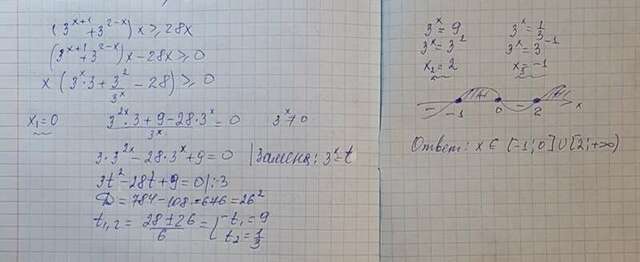 (3^{x+1} + 3^{2-x}) x ⩾ 28x
(3^{x+1} + 3^{2-x}) x - 28x ⩾ 0
x (3^x · 3 + \frac{3^2}{3^x} - 28) ⩾ 0
x_1 = 0   \frac{3^{2x} · 3 + 9 - 28 · 3^x}{3^x} = 0   3^x ≠ 0
3 · 3^{2x} - 28 · 3^x + 9 = 0 | Замена: 3^x = t
3t^2 - 28t + 9 = 0 | : 3
D = 784 - 108 = 646 = 26^2
t_{1,2} = \frac{28 ± 26}{6} = [ t_1 = 9
t_2 = \frac{1}{3}
3^x = 9   3^x = \frac{1}{3}
3^x = 3^2   3^x = 3^{-1}
x_2 = 2   x_3 = -1
- + - +
-1 0 2 x
Ответ: x ∈ [-1; 0] ∪ [2; +∞)